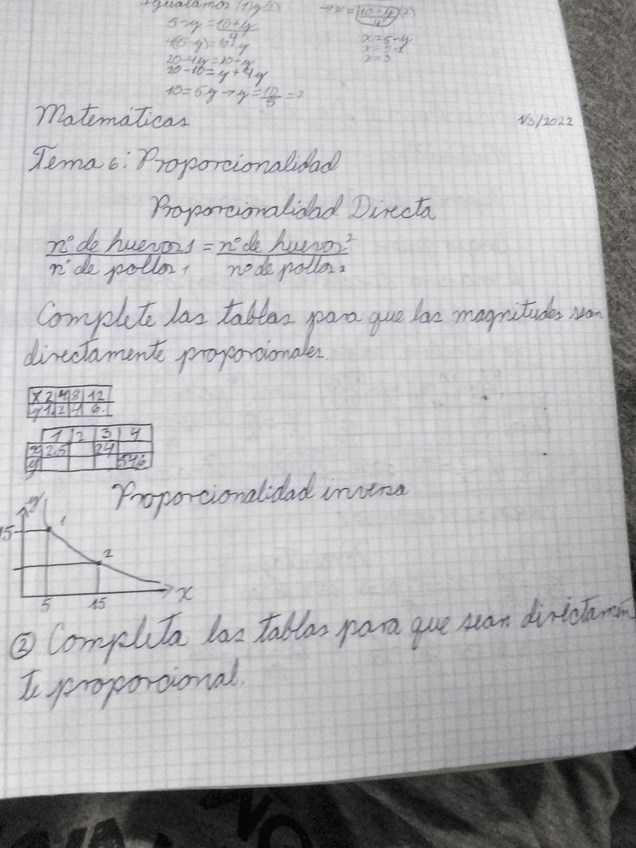 5-y=10+y
20-4y=10-y
20-10=y+4y
10=5y→y=10/5=2
x=5-y
x=3
Matemáticas
1/3/2022
Tema 6: Proporcionalidad
Proporcionalidad Directa
nº de huevos 1 = nº de huevos 2
nº de pollos 1 nº de pollos 2
Complete las tablas para que las magnitudes sean
directamente proporcionales.
x 2 4 8 12
y 1 2 4 6
1 2 3 4
x 2,5 24
y 546
Proporcionalidad inversa
y
15
1
2
5 15 x
② Completa las tablas para que sean directamen
te proporcional.